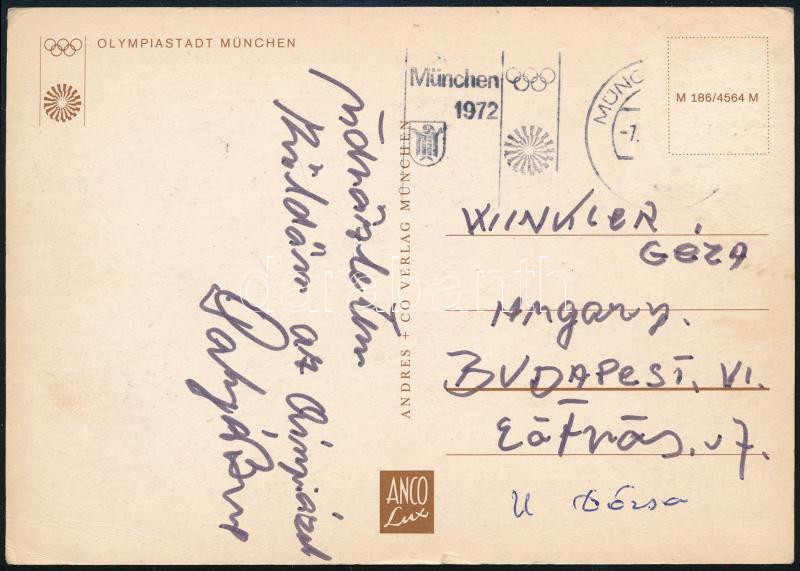 OLYMPIASTADT MÜNCHEN
München
1972
MÜNC
-7.
M 186/4564 M
Üdvözletem
Küldöm az Olimpiáról
ANDRES + CO VERLAG MÜNCHEN
WINKLER
GÉZA
Hungary.
BUDAPEST. VI.
Eötvös. u 7.
U Dózsa
ANCO
Lux
darabanth